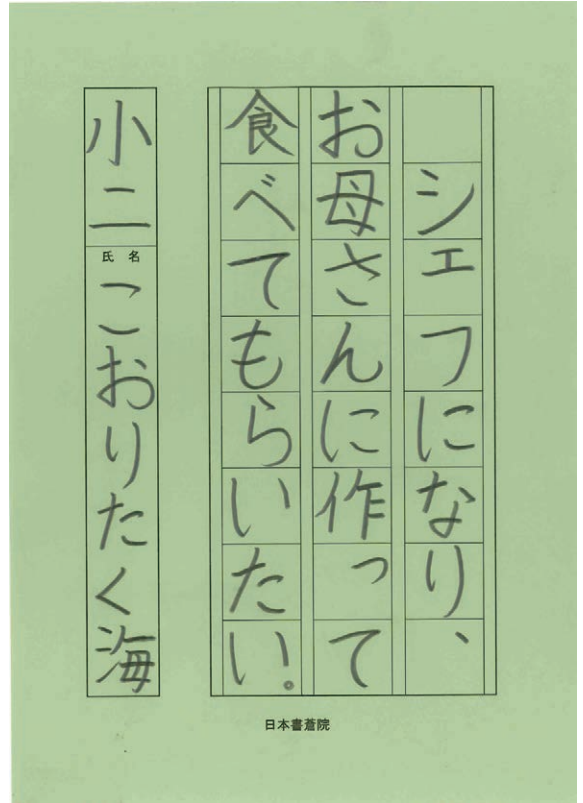 シェフになり、
お母さんに作って
食べてもらいたい。
小二
氏名
こおりたく海
日本書蒼院